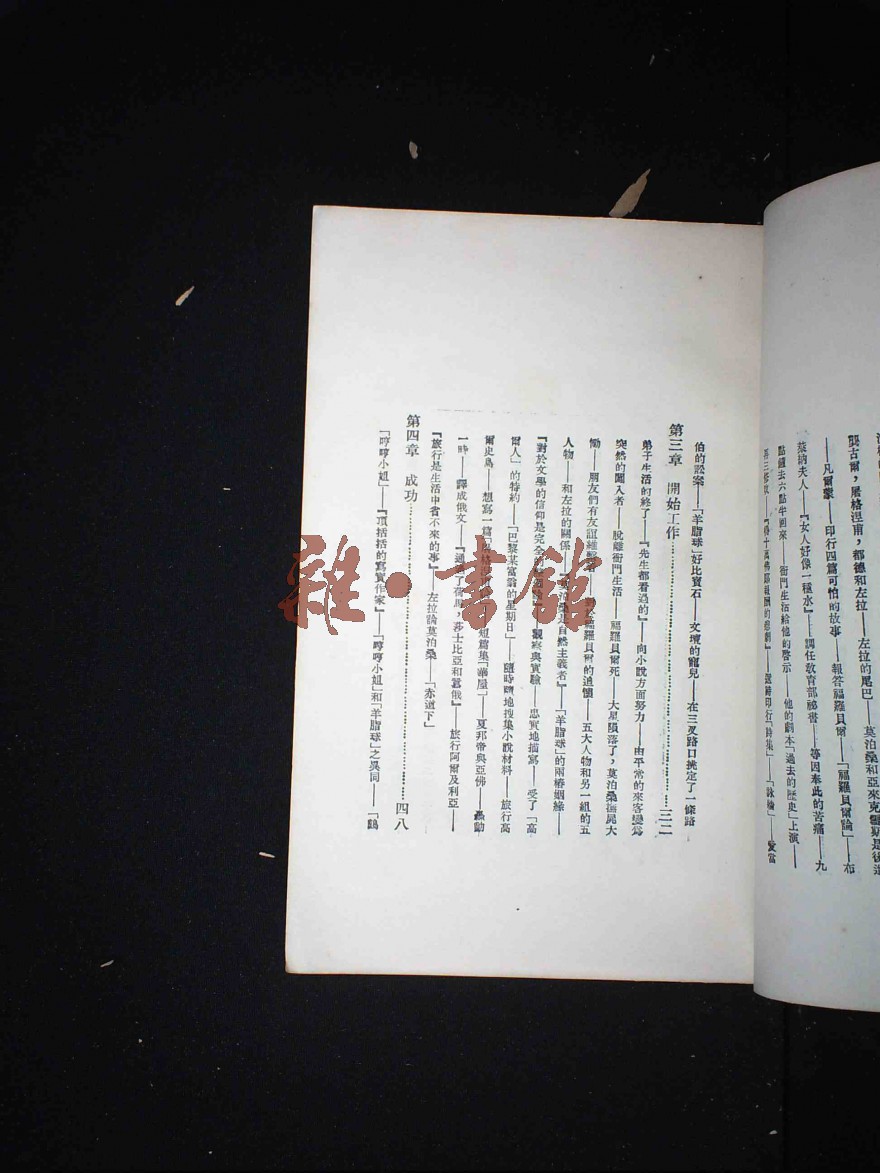 龔古爾,屠格涅甫,都德和左拉——左拉的尾巴——莫泊桑和亞來克
——凡爾蒙——印行四篇可怕的故事——報答福羅貝爾——「福羅貝爾論」——布
萊納夫人——『女人好像一種水』——調任教育部祕書——等因奉此的苦痛——九
點鐘去六點半回來——衙門生活給他的啓示——他的劇本「過去的歷史」上演——
印行「詩集」——「詠綸」
伯的訟案——「羊脂球」好比寶石——文壇的寵兒——在三叉路口挑定了一條路
第三章 開始工作……三二
弟子生活的終了——『先生都看過的』——向小說方面努力——由平常的來客變爲
突然的闖入者——脫離衙門生活——福羅貝爾死——大星隕落了,莫泊桑撫屍大
慟——朋友們有友誼維 福羅貝爾的追懷——五大人物和另一組的五
人物——和左拉的關係——莫泊桑是自然主義者』——「羊脂球」的兩樁姻緣——
『對於文學的信仰是完全的 觀察與實驗——忠實地描寫——受了「高
爾人」的特約——「巴黎某富翁的星期日」——隨時隨地搜集小說材料——旅行高
爾史島——想寫一篇「屠格涅甫 短篇集「 屋」——夏邦帝與亞佛——轟動
一時——譯成俄文——『通 了荷馬,莎士比亞和囂俄』——旅行阿爾及利亞——
『旅行是生活中省不來的事』——左拉論莫泊桑——「赤道下」
第四章 成功……四八
「哼哼小姐」——『頂括括的寫實作家』——「哼哼小姐」和「羊脂球」之異同——「鷄
雜·書館